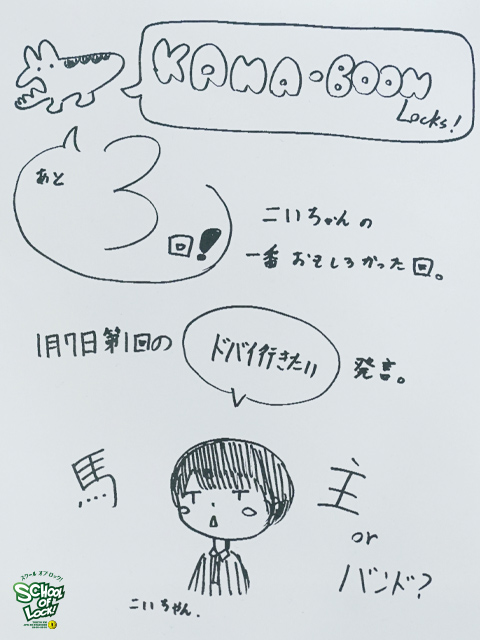 KANA-BOON
Locks!
あと
3
回!
こいちゃんの
一番おもしろかった回。
1月7日第1回の
ドバイ行きたい
発言。
馬
主
or
バンド?
こいちゃん.
スクール オブ ロック!
SCHOOL
OF
LOCK!